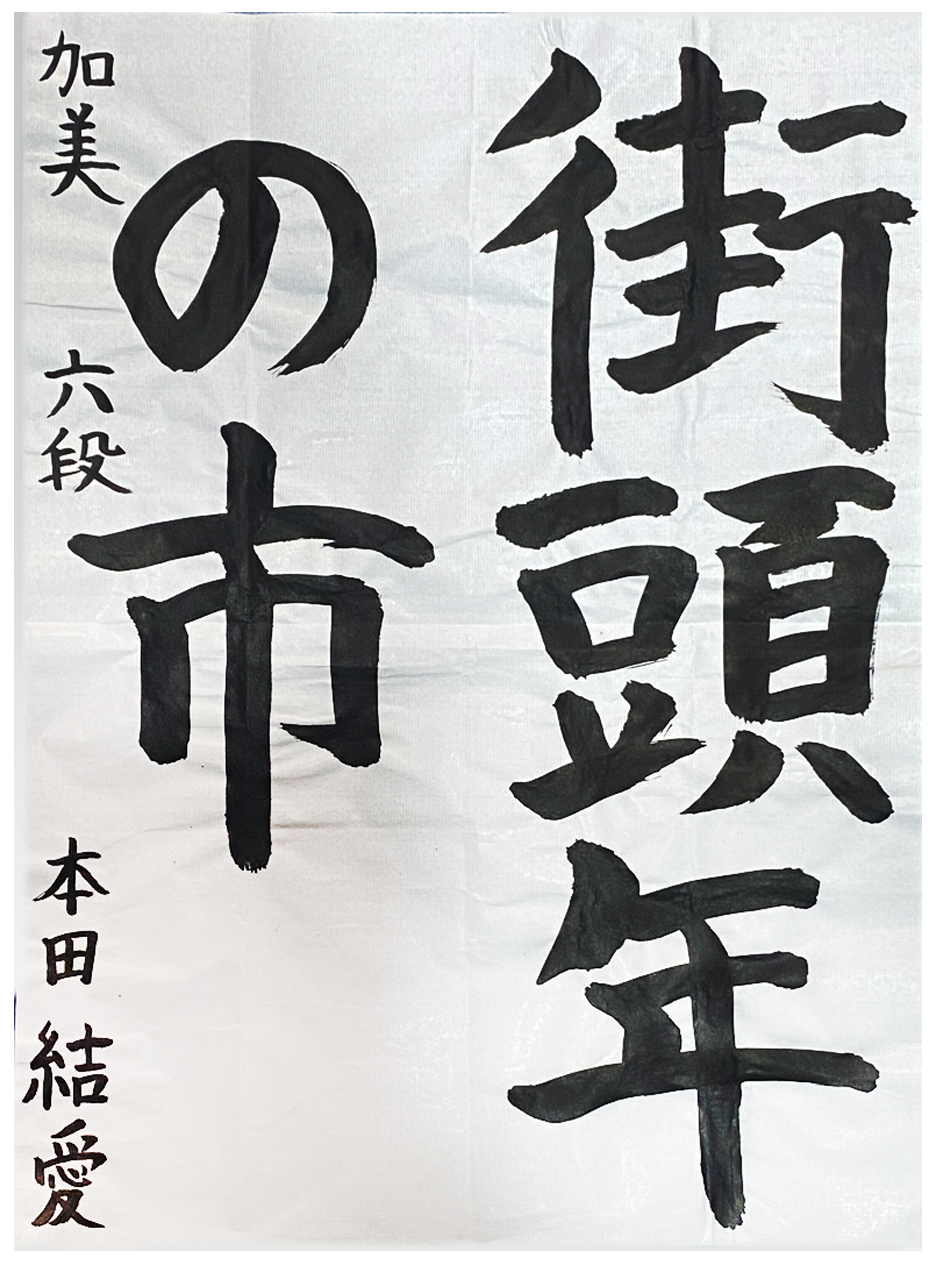 街頭年
の市
加美 六段 本田結愛